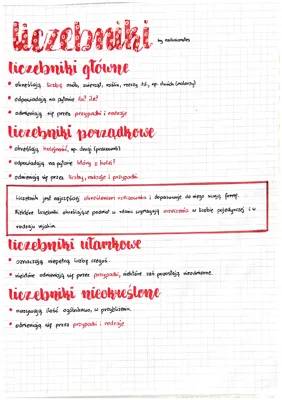 liczebniki
liczebniki główne
• określają liczbę osób, zwierząt, roślin, rzeczy itd., np. dwóch (malarzy)
• odpowiadają na pytania ile? ilu?
• odmieniają się przez przypadki i rodzaje
liczebniki porządkowe
• określają kolejność, np. drugi (przecinek)
• odpowiadają na pytanie który z kolei?
• odmieniają się przez liczby, rodzaje i przypadki
Liczebnik jest najczęściej określeniem rzeczownika i dopasowuje do niego swoją formę.
Niektóre liczebniki określające podmiot w zdaniu wymagają orzeczenia w liczbie pojedynczej i w
rodzaju nijakim.
liczebniki ułamkowe
• oznaczają niepełną liczbę czegoś.
• niektóre odmieniają się przez przypadki, niektóre zaś pozostają nieodmienne.
liczebniki nieokreślone
• nazywają ilość ogólnikowo, w przybliżeniu.
• odmieniają się przez przypadki i rodzaje